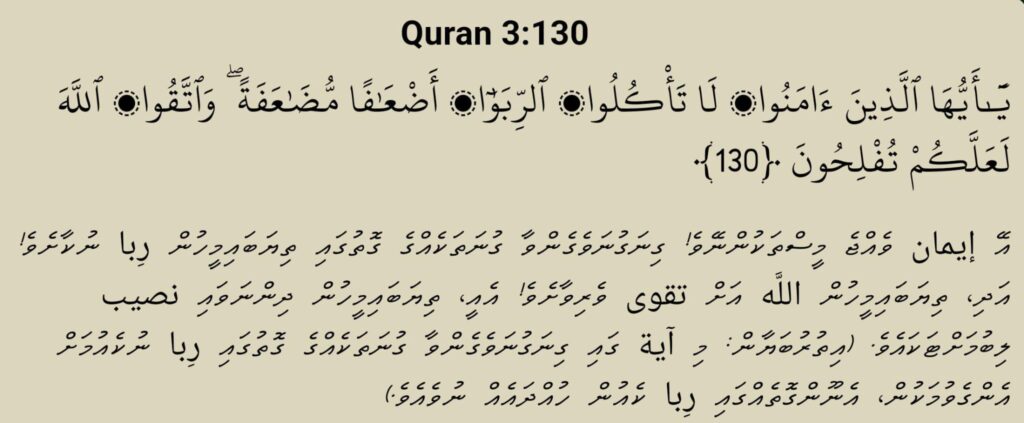 Quran 3:130
يَـٰٓأَيُّهَا ٱلَّذِينَ ءَامَنُوا۟ لَا تَأْكُلُوا۟ ٱلرِّبَوٰٓا۟ أَضْعَـٰفًا مُّضَـٰعَفَةً ۖ وَٱتَّقُوا۟ ٱللَّهَ
لَعَلَّكُمْ تُفْلِحُونَ ﴿130﴾
އޭ إيمان ވެއްޖެ މީސްތަކުންނޭވެ! ގިނަގުނަވެގެންވާ ގުނަތަކެއްގެ ގޮތުގައި ތިޔަބައިމީހުން رِبا ނުކާށެވެ!
އަދި، ތިޔަބައިމީހުން اللَّه އަށް تقوى ވެރިވާށެވެ! އެއީ، ތިޔަބައިމީހުން ދިންނަވައި نصيب
ލިބުމަށްޓަކައެވެ. (އިތުރުބަޔާން: މި آية ގައި ގިނަގުނަވެގެންވާ ގުނަތަކެއްގެ ގޮތުގައި رِبا ނުކެއުމަށް
އެންގެވުމަކުން، އެނޫންގޮތެއްގައި رِبا ކެއުން ހުއްދައެއް ނުވެއެވެ.)